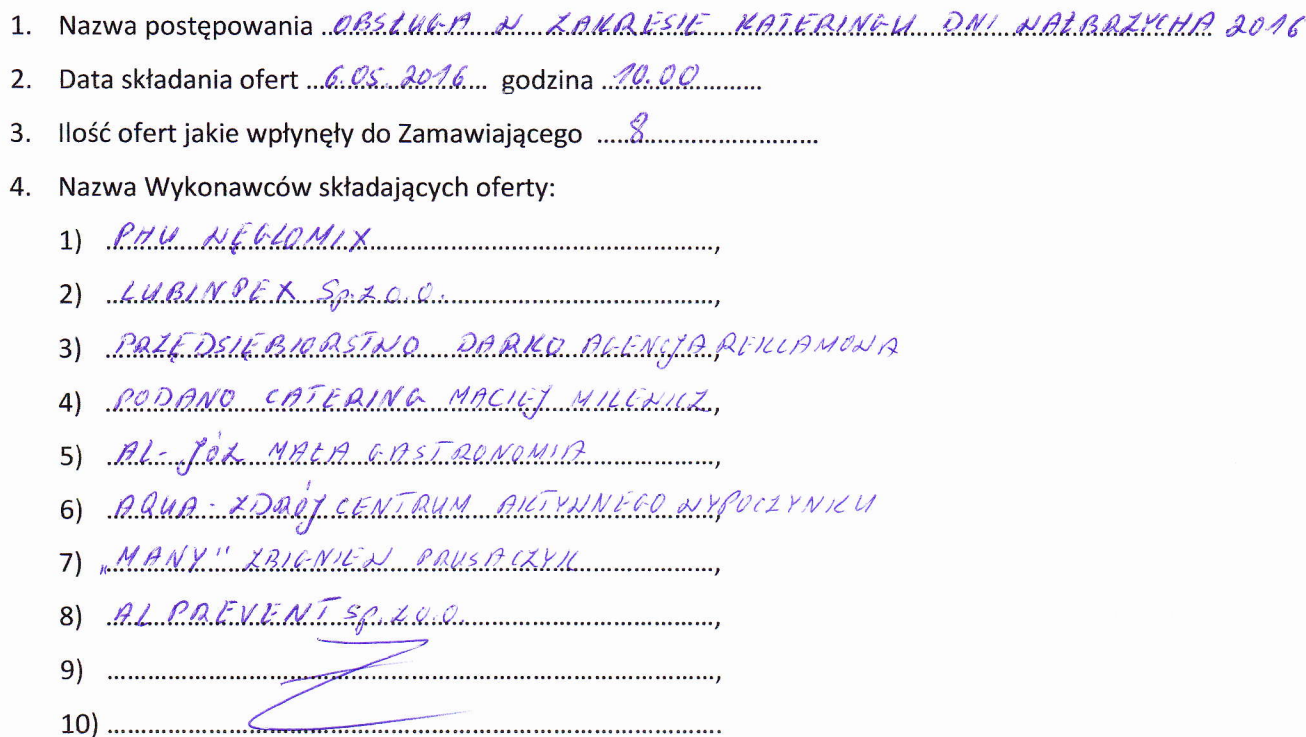 1. Nazwa postępowania OBSŁUGA W ZAKRESIE KATERINGU DNI WAŁBRZYCHA 2016
2. Data składania ofert 6.05.2016 godzina 10.00
3. Ilość ofert jakie wpłynęły do Zamawiającego 8
4. Nazwa Wykonawców składających oferty:
1) PHU WĘGLOMIX,
2) LUBINPEX Sp. z o.o.,
3) PRZĘDSIĘBIORSTWO DARKO AGENCJA REKLAMOWA
4) PODANO CATERING MACIEJ MILEWICZ,
5) AL-JÓZ MAŁA GASTRONOMIA,
6) AQUA-ZDRÓJ CENTRUM AKTYWNEGO WYPOCZYNKU
7) „MANY" ZBIGNIEW PRUSACZYK,
8) AL PREVENT sp. z o.o.,
9) ,
10)